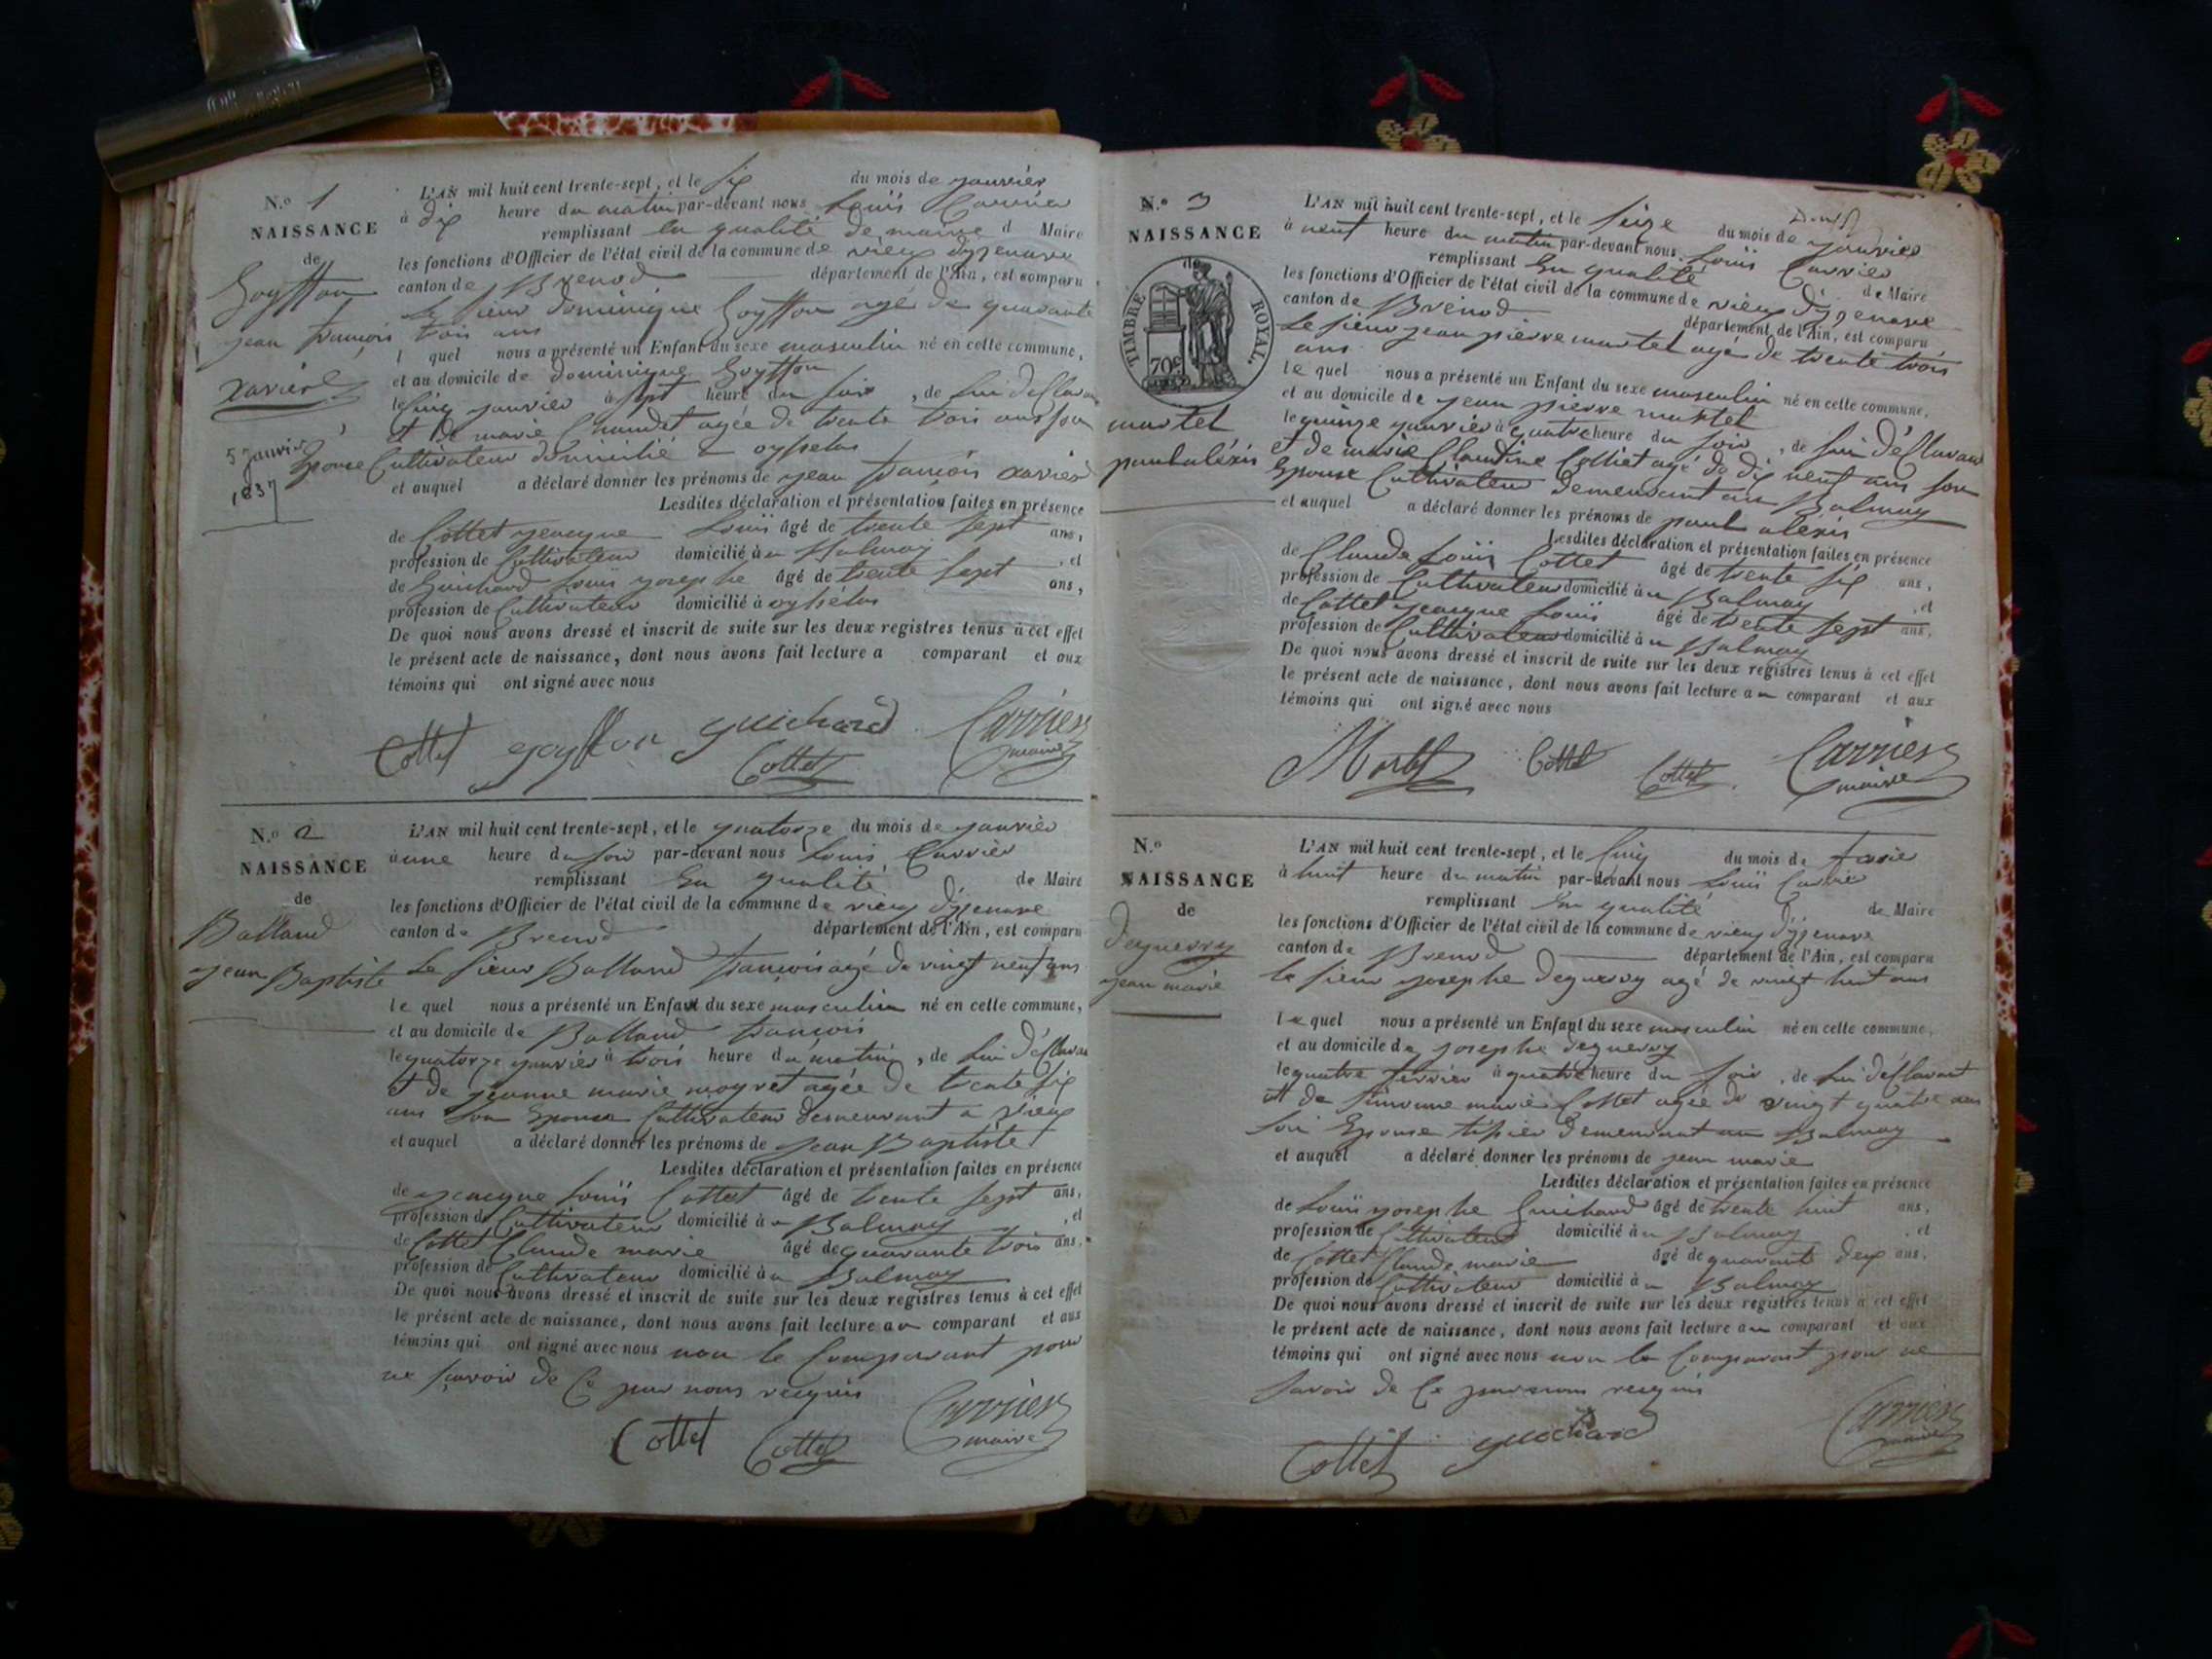 N.º 1
NAISSANCE
de
Goyffon
jean françois
xavier
5 Janvier
1837
L'AN mil huit cent trente-sept, et le six du mois de janvier
à dix heure du matin par-devant nous Louis Carrier
remplissant en qualité de maire d Maire
les fonctions d'Officier de l'état civil de la commune de vieux d'yzenave
canton de Brenod département de l'Ain, est comparu
Le sieur dominique Goyffon agé de quarante
trois ans
l quel nous a présenté un Enfant du sexe masculin né en cette commune,
et au domicile de dominique Goyffon
le cinq janvier à sept heure du soir, de lui déclarant
et de marie Chaudet agée de trente trois ans son
Epouse Cultivateur domicilié a oysselas
et auquel a déclaré donner les prénoms de jean françois xavier
Lesdites déclaration et présentation faites en présence
de Cottet jeacque Louis âgé de trente sept ans,
profession de Cultivateur domicilié à u Balmay, et
de Guichard Louis josephe âgé de trente sept ans,
profession de Cultivateur domicilié à oysselas
De quoi nous avons dressé et inscrit de suite sur les deux registres tenus à cet effet
le présent acte de naissance, dont nous avons fait lecture a comparant et aux
témoins qui ont signé avec nous
Cottet goyffon guichard Carrier
Cottet maire
N.º 2
NAISSANCE
de
Balland
jean Baptiste
L'AN mil huit cent trente-sept, et le quatorze du mois de janvier
à une heure du soir par-devant nous Louis Carrier
remplissant En qualité de Maire
les fonctions d'Officier de l'état civil de la commune de vieux d'yzenave
canton de Brenod département de l'Ain, est comparu
Le sieur Balland françois agé de vingt neuf ans
le quel nous a présenté un Enfant du sexe masculin né en cette commune,
et au domicile de Balland françois
le quatorze janvier à trois heure du matin, de lui déclarant
et de jeanne marie moyret agée de trente six
ans son Epouse Cultivateur demeurant a vieux
et auquel a déclaré donner les prénoms de jean Baptiste
Lesdites déclaration et présentation faites en présence
de jeacque Louis Cottet âgé de trente sept ans,
profession de Cultivateur domicilié à u Balmay, et
de Cottet Claude marie âgé de quarante trois ans,
profession de Cultivateur domicilié à u Balmay
De quoi nous avons dressé et inscrit de suite sur les deux registres tenus à cet effet
le présent acte de naissance, dont nous avons fait lecture a u comparant et aux
témoins qui ont signé avec nous non le Comparant pour
ne savoir de Ce par nous requis
Cottet Cottet Carrier
maire
N.º 3
NAISSANCE
de
TIMBRE ROYAL.
70c
martel
paul aléxis
L'AN mil huit cent trente-sept, et le seize du mois de janvier
à neuf heure du matin par-devant nous Louis Carrier
remplissant En qualité de Maire
les fonctions d'Officier de l'état civil de la commune de vieux d'yzenave
canton de Brénod département de l'Ain, est comparu
Le sieur jean pierre martel agé de trente trois
ans
le quel nous a présenté un Enfant du sexe masculin né en cette commune,
et au domicile de jean pierre martel
le quinze janvier à quatre heure du soir, de lui déclarant
et de marie Claudine Colliet agé de dix neuf ans son
Epouse Cultivateur demeurant au Balmay
et auquel a déclaré donner les prénoms de paul alexis
Lesdites déclaration et présentation faites en présence
de Claude Louis Cottet âgé de trente six ans,
profession de Cultivateur domicilié à u Balmay, et
de Cottet jeacque Louis âgé de trente sept ans,
profession de Cultivateur domicilié à u Balmay
De quoi nous avons dressé et inscrit de suite sur les deux registres tenus à cet effet
le présent acte de naissance, dont nous avons fait lecture a u comparant et aux
témoins qui ont signé avec nous
Martel Cottet Cottet Carrier
maire
N.º
NAISSANCE
de
Deguerry
jean marie
L'AN mil huit cent trente-sept, et le Cinq du mois de
à huit heure du matin par-devant nous Louis Carrier
remplissant En qualité de Maire
les fonctions d'Officier de l'état civil de la commune de vieux d'yzenave
canton de Brenod département de l'Ain, est comparu
le sieur josephe deguerry agé de vingt huit ans
le quel nous a présenté un Enfant du sexe masculin né en cette commune,
et au domicile de josephe deguerry
le quatre fevrier à quatre heure du soir, de lui déclarant
et de marie Cottet agée de vingt quatre ans
son Epouse tissier demeurant au Balmay
et auquel a déclaré donner les prénoms de jean marie
Lesdites déclaration et présentation faites en présence
de Louis josephe Guichard âgé de trente huit ans,
profession de Cultivateur domicilié à u Balmay, et
de Cottet Claude marie âgé de quarante deux ans,
profession de Cultivateur domicilié à u Balmay
De quoi nous avons dressé et inscrit de suite sur les deux registres tenus à cet effet
le présent acte de naissance, dont nous avons fait lecture a u comparant et aux
témoins qui ont signé avec nous non le Comparant pour ne
savoir de Ce par nous requis
Cottet guichard Carrier
maire